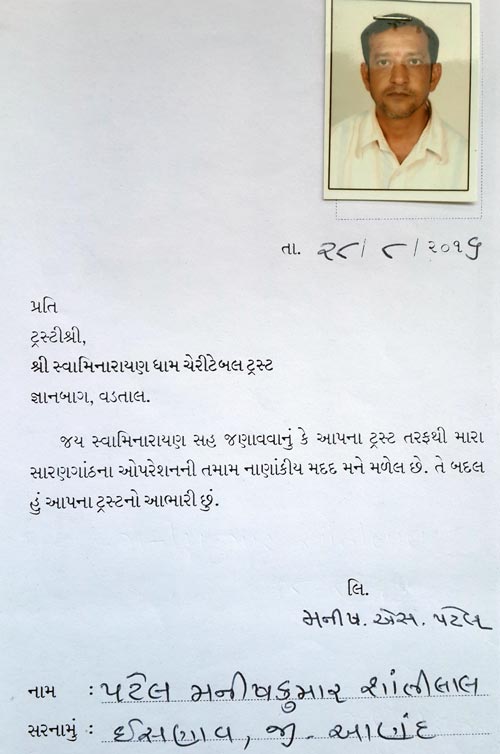 તા. ૨૮/૮/૨૦૧૬
પ્રતિ
ટ્રસ્ટીશ્રી,
શ્રી સ્વામિનારાયણ ધામ ચેરીટેબલ ટ્રસ્ટ
જ્ઞાનબાગ, વડતાલ.
જય સ્વામિનારાયણ સહ જણાવવાનું કે આપના ટ્રસ્ટ તરફથી મારા
સારણગાંઠના ઓપરેશનની તમામ નાણાંકીય મદદ મને મળેલ છે. તે બદલ
હું આપના ટ્રસ્ટનો આભારી છું.
લિ.
મનીષ. એસ. પટેલ
નામ : પટેલ મનીષકુમાર શાંતીલાલ
સરનામું : ઈસણાવ, જી. આણંદ